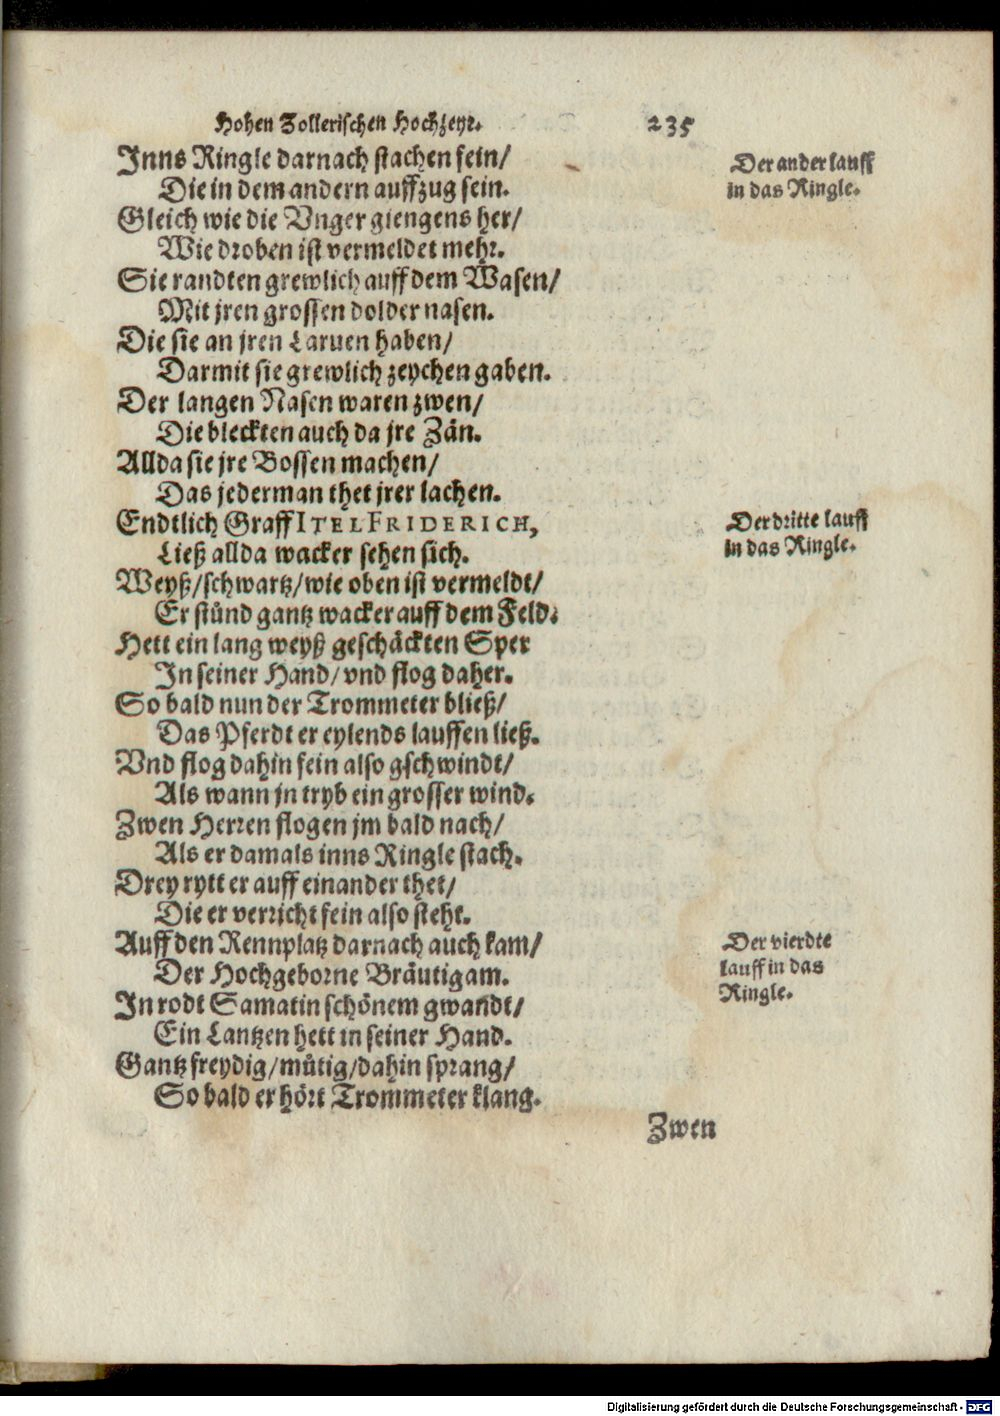 Hohen Zollerischen Hochzeyt. 235
Inns Ringle darnach stachen fein/
Die in dem andern auffzug sein.
Gleich wie die Vnger giengens her/
Wie droben ist vermeldet mehr.
Sie randten grewlich auff dem Wasen/
Mit jren grossen dolder nasen.
Die sie an jren Laruen haben/
Darmit sie grewlich zeychen gaben.
Der langen Nasen waren zwen/
Die bleckten auch da jre Zän.
Allda sie jre Bossen machen/
Das jederman thet jrer lachen.
Endtlich Graff ITEL FRIDERICH,
Ließ allda wacker sehen sich.
Weyß/schwartz/wie oben ist vermeldt/
Er stůnd gantz wacker auff dem Feld.
Hett ein lang weyß geschäckten Sper
In seiner Hand/vnd flog daher.
So bald nun der Trommeter bließ/
Das Pferdt er eylends lauffen ließ.
Vnd flog dahin fein also gschwindt/
Als wann jn tryb ein grosser wind.
Zwen Herren flogen jm bald nach/
Als er damals inns Ringle stach.
Drey rytt er auff einander thet/
Die er verricht fein also steht.
Auff den Rennplatz darnach auch kam/
Der Hochgeborne Bräutigam.
In rodt Samatin schönem gwandt/
Ein Lantzen hett in seiner Hand.
Gantz freydig/můtig/dahin sprang/
So bald er hört Trommeter klang.
Zwen
Der ander lauff
in das Ringle.
Der dritte lauff
in das Ringle.
Der vierdte
lauff in das
Ringle.
Digitalisierung gefördert durch die Deutsche Forschungsgemeinschaft - DFG